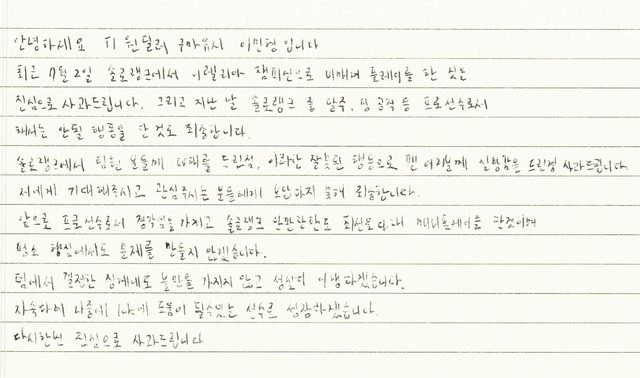 안녕하세요 티 원딜러 구마유시 이민형 입니다
최근 7월 2일 솔로랭크에서 이렐리아 챔피언으로 비매너 플레이를 한 것은
진심으로 사과드립니다. 그리고 지난 날 솔로랭크 중 탈주, 팀 공격 등 프로선수로서
해서는 안될 행동을 한 것도 죄송합니다.
솔로랭크에서 팀원 분들께 피해를 드린점, 이러한 잘못된 행동으로 팬 여러분께 실망감을 드린점 사과드립니다.
저에게 기대해주시고 관심주시는 분들에게 보답하지 못해 죄송합니다.
앞으로 프로선수로서 경각심을 가지고 솔로랭크 한판한판도 최선을 다해 매너플레이를 할것이며
평소 행실에서도 문제를 만들지 않겠습니다.
팀에서 결정한 징계에도 불만을 가지지 않고 성실히 이행하겠습니다.
자숙하며 나중에 도움이 될수있는 선수로 성장하겠습니다.
다시한번 진심으로 사과드립니다